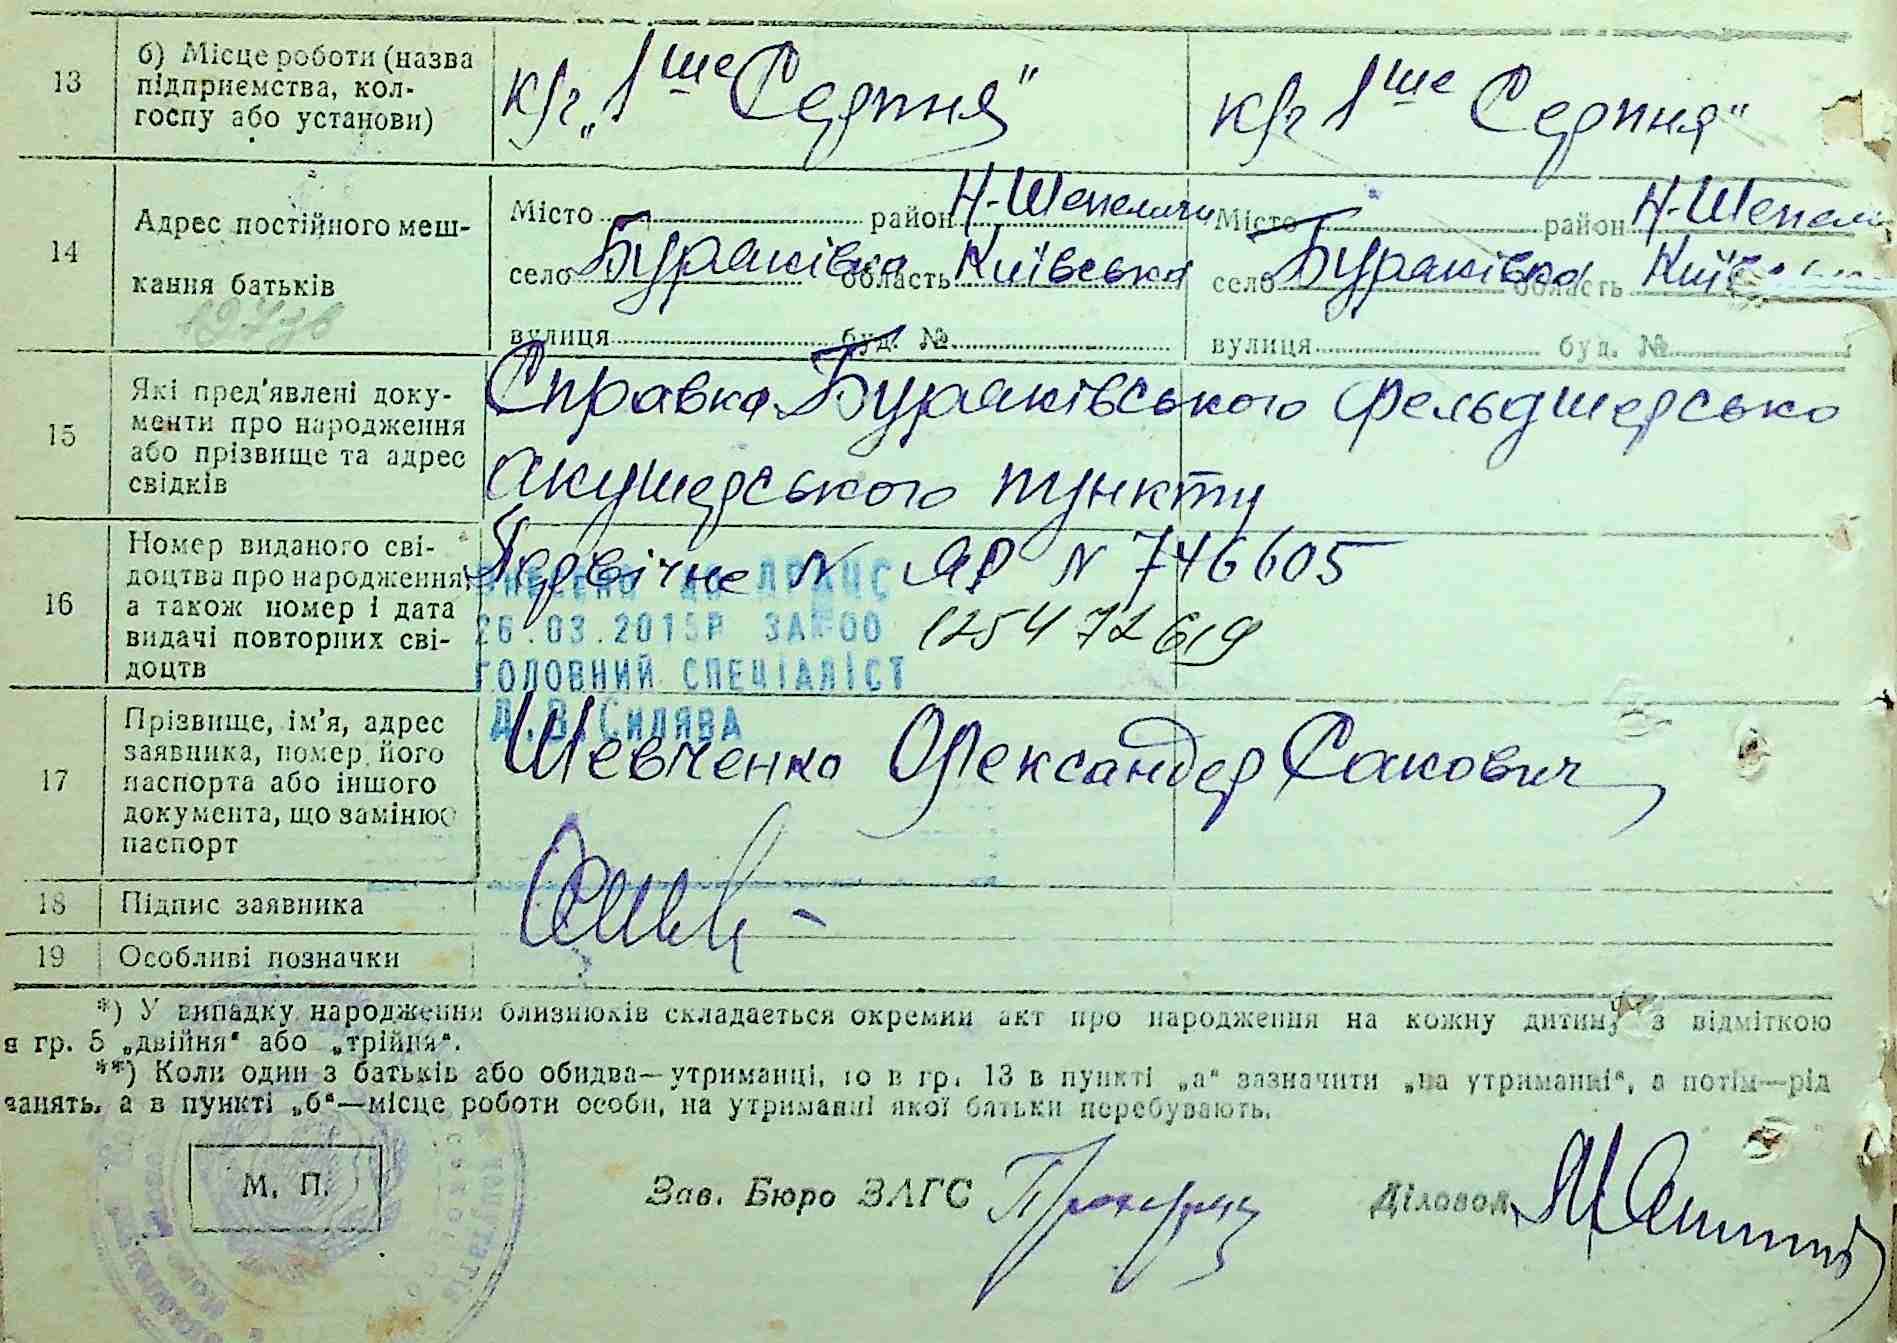 13
б) Місце роботи (назва
підприємства, кол-
госпу або установи)
к/г „1ше Серпня"
к/г 1ше Серпня"
14
Адрес постійного меш-
кання батьків
Місто район Н-Шепеличи
село Бураківка область Київська
вулиця буд. №
Місто район Н-Шепели
село Бураківка область Київ
вулиця буд. №
15
Які пред'явлені доку-
менти про народження
або прізвище та адрес
свідків
Справка Бураківського фельдшерсько
акушерського пункту
16
Номер виданого сві-
доцтва про народження,
а також номер і дата
видачі повторних сві-
доцтв
Первічне N ЯР N 746605
125472619
ВНЕСЕНО ДО ДРАЦС
26.03.2015Р ЗА №00
ГОЛОВНИЙ СПЕЦІАЛІСТ
Д.В.СИЛЯВА
17
Прізвище, ім'я, адрес
заявника, номер його
паспорта або іншого
документа, що замінює
паспорт
Шевченко Олександер Сакович
18
Підпис заявника
19
Особливі позначки
*) У випадку народження близнюків складається окремий акт про народження на кожну дитину з відміткою
в гр. 5 „двійня" або „трійня".
**) Коли один з батьків або обидва—утриманці, то в гр. 13 в пункті „а" зазначити „на утриманні", а потім—рід
занять, а в пункті „б"—місце роботи особи, на утриманні якої батьки перебувають.
М. П.
Зав. Бюро ЗАГС
Діловод